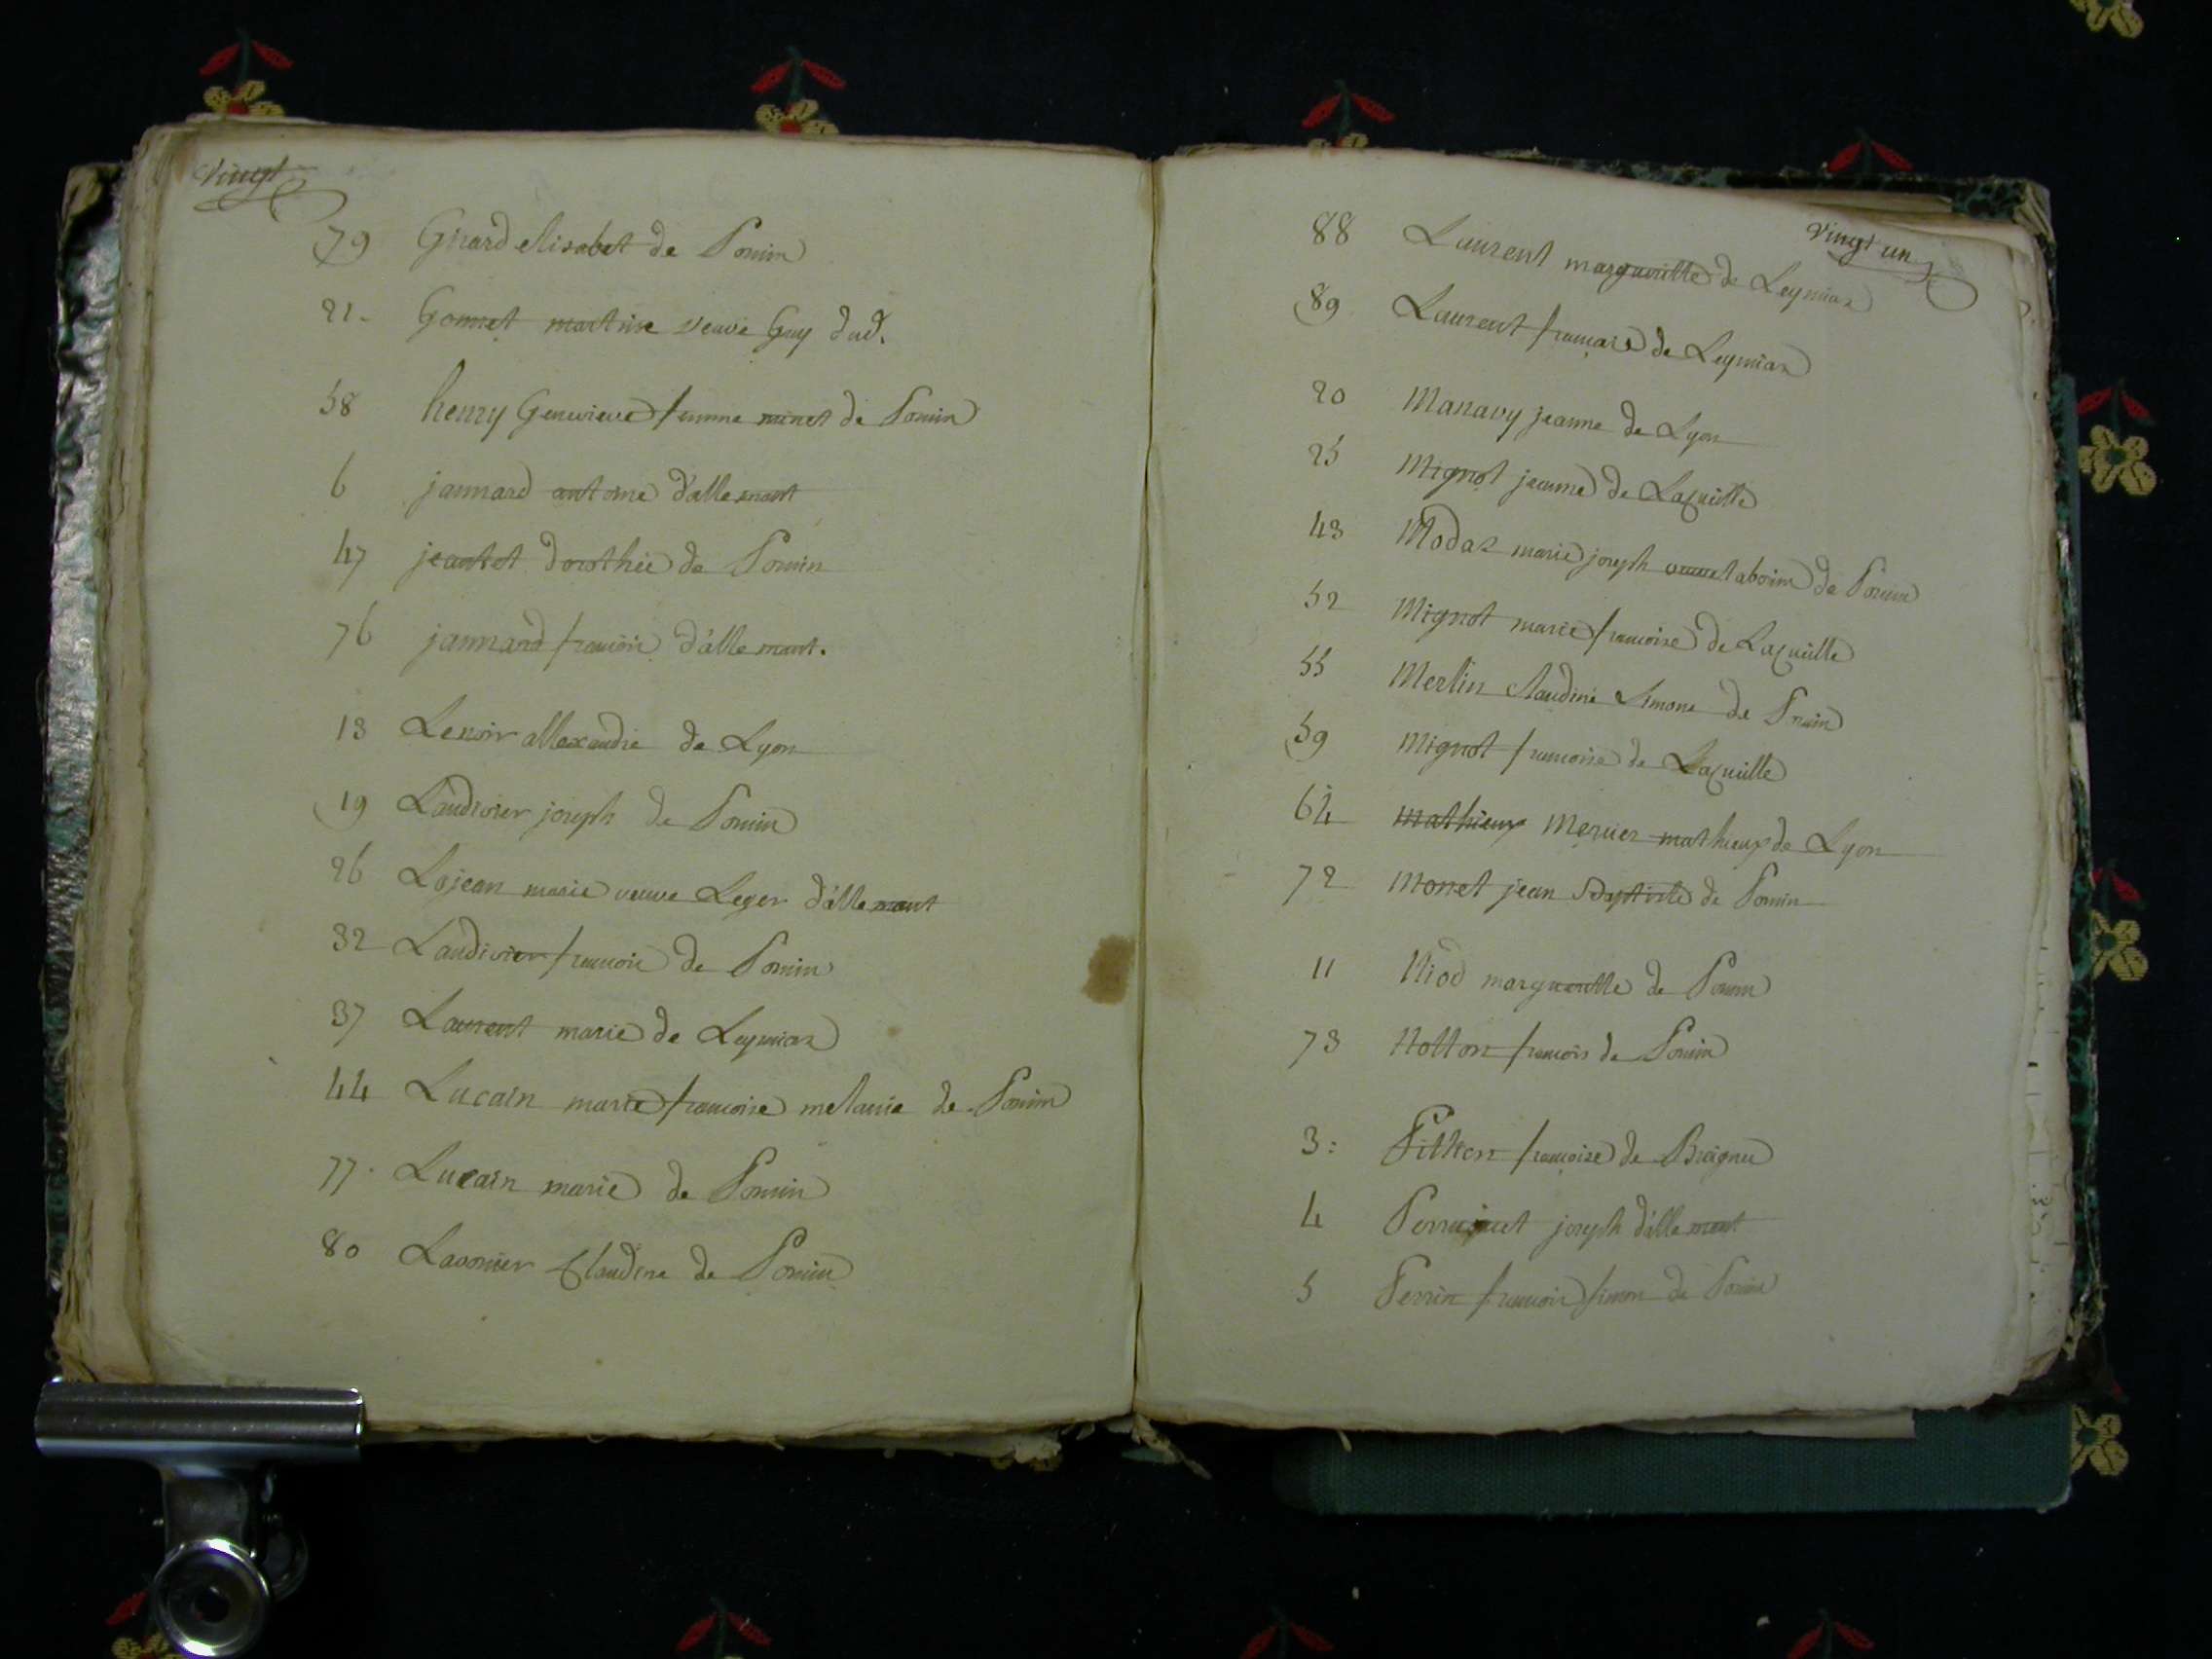 vingt
79 Girard elisabet de Poncin
21 - Gonnet martine veuve Guy dud.
58 henry Genevieve femme minet de Poncin
6 jannard antoine d'allemant
47 jeantet dorothée de Poncin
76 jannard francois d'allemant.
13 Lenoir allexandre de Lyon
19 Laudivier joseph de Poncin
26 Lajean marie veuve Leger d'allemant
32 Laudivier francois de Poncin
37 Laurent marie de Leymiaz
44 Lucain marie francoise melanie de Poncin
77. Lucain marie de Poncin
80 Laomier Claudine de Poncin
vingt un
88 Laurent margueritte de Leymiaz
89 Laurent francois de Leymiaz
20 Manavy jeanne de Lyon
25 Mignot jeanne de Lacueille
43 Modas marie joseph de Poncin
52 Mignot marie francoise de Lacueille
55 Merlin Claudine Simone de Poncin
59 Mignot francoise de Lacueille
64 mathieux Mercier mathieux de Lyon
72 Monet jean Baptiste de Poncin
11 Niod margueritte de Poncin
73 Notton francois de Poncin
3: Pitton francoise de
4 joseph d'allemant
5 Perrin francois simon de Poncin